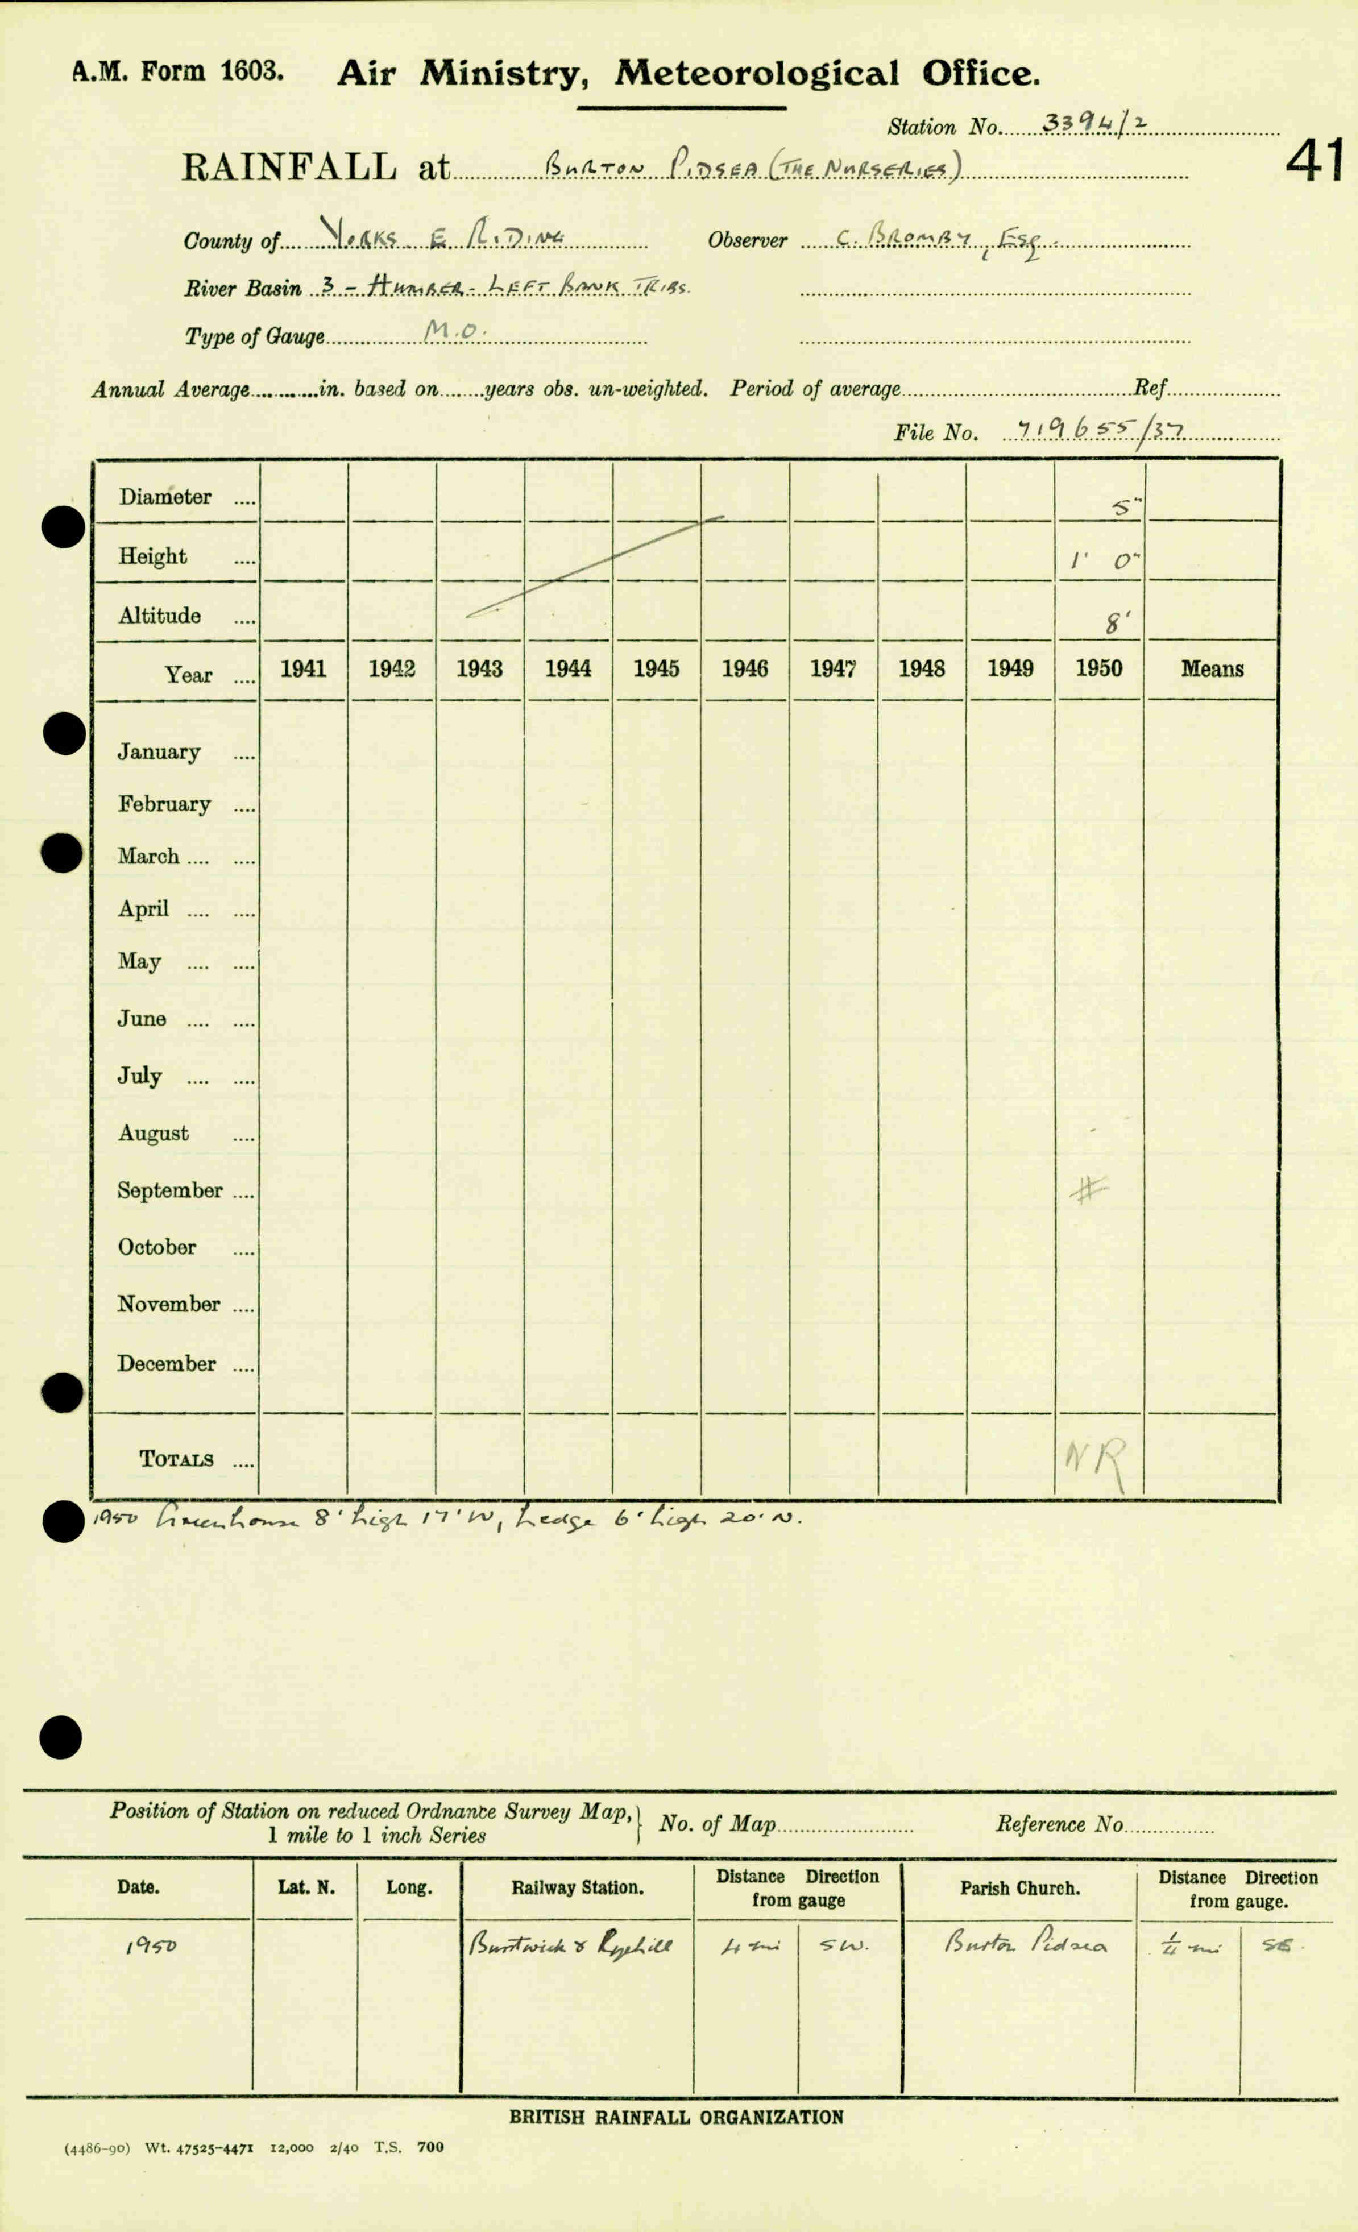 A.M. Form 1603. Air Ministry, Meteorological Office.
Station No. 3394/2
41
RAINFALL at BURTON PIDSEA (THE NURSERIES)
County of YORKS E RIDING Observer C. BROMBY, ESQ.
River Basin 3 - HUMBER - LEFT BANK TRIBS.
Type of Gauge M.O.
Annual Average in. based on years obs. un-weighted. Period of average Ref.
File No. 719655/37
Diameter 5"
Height 1' 0"
Altitude 8'
Year 1941 1942 1943 1944 1945 1946 1947 1948 1949 1950 Means
January
February
March
April
May
June
July
August
September #
October
November
December
TOTALS NR
1950 Greenhouse 8' high 17' W, hedge 6' high 20' N.
Position of Station on reduced Ordnance Survey Map, 1 mile to 1 inch Series } No. of Map Reference No.
Date. Lat. N. Long. Railway Station. Distance Direction from gauge Parish Church. Distance Direction from gauge.
1950 Burstwick & Ryehill 4 mi SW. Burton Pidsea ¼ mi SE.
BRITISH RAINFALL ORGANIZATION
(4486-90) Wt. 47525-4471 12,000 2/40 T.S. 700